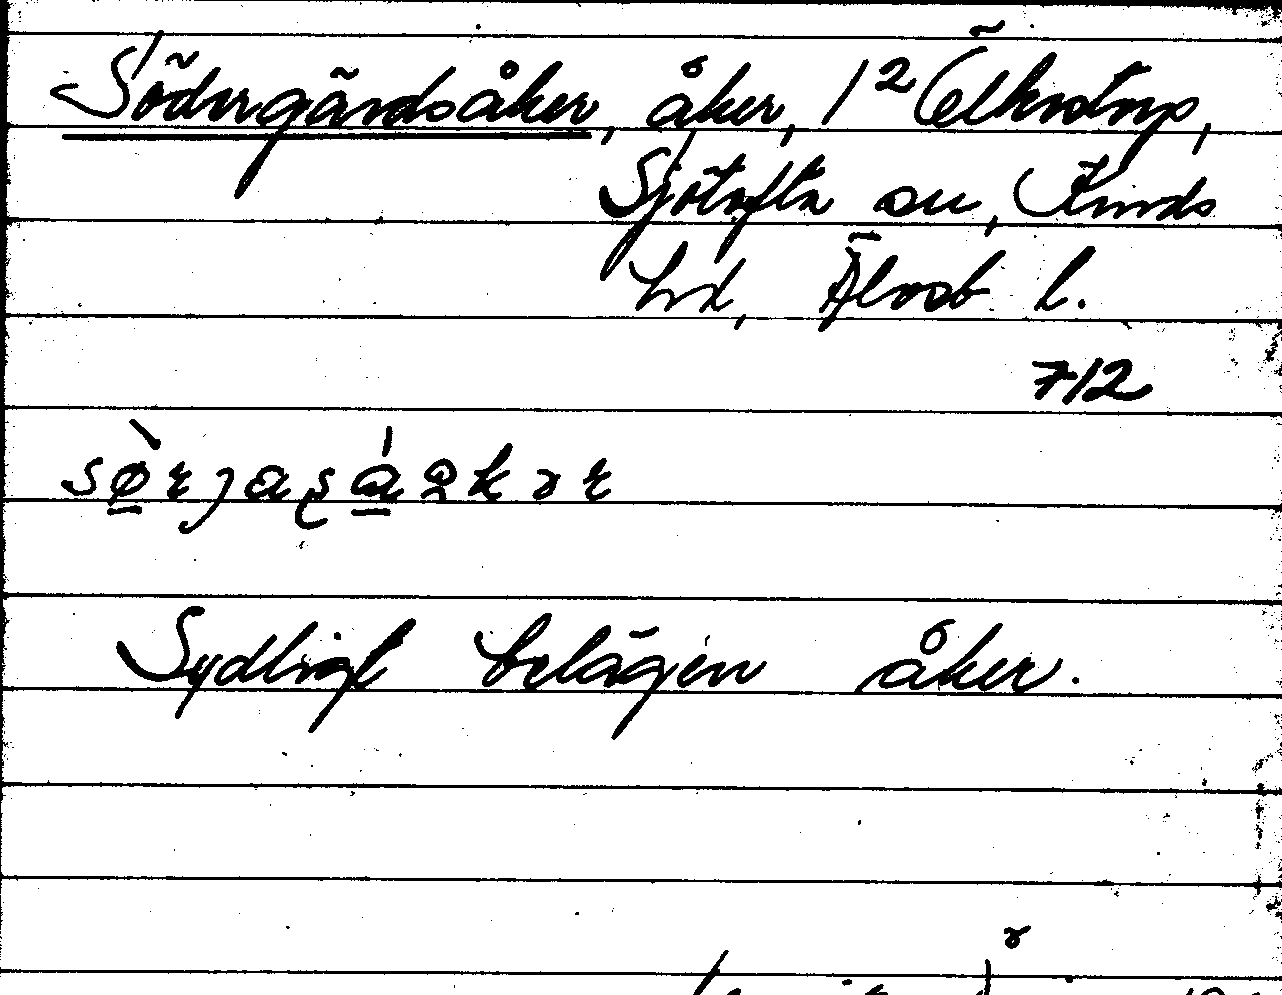 Södergärdsåker, åker, 1² Ölkestorp,
Sjötofta sn, Kinds
hd, Älvsb l.
712
Sydligt belägen åker.